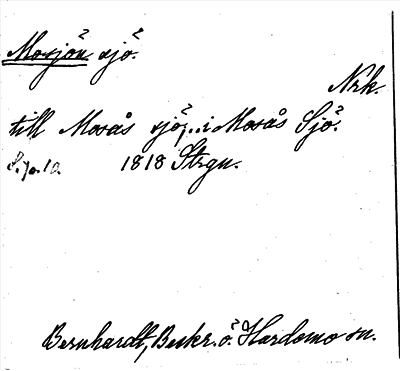 Mosjön sjö.
Nrk.
till Mosås sjö, i Mosås Sjö.
S. 70. 10. 1818 Strgn.
Bernhardt, Beskr. ö. Hardemo sn.